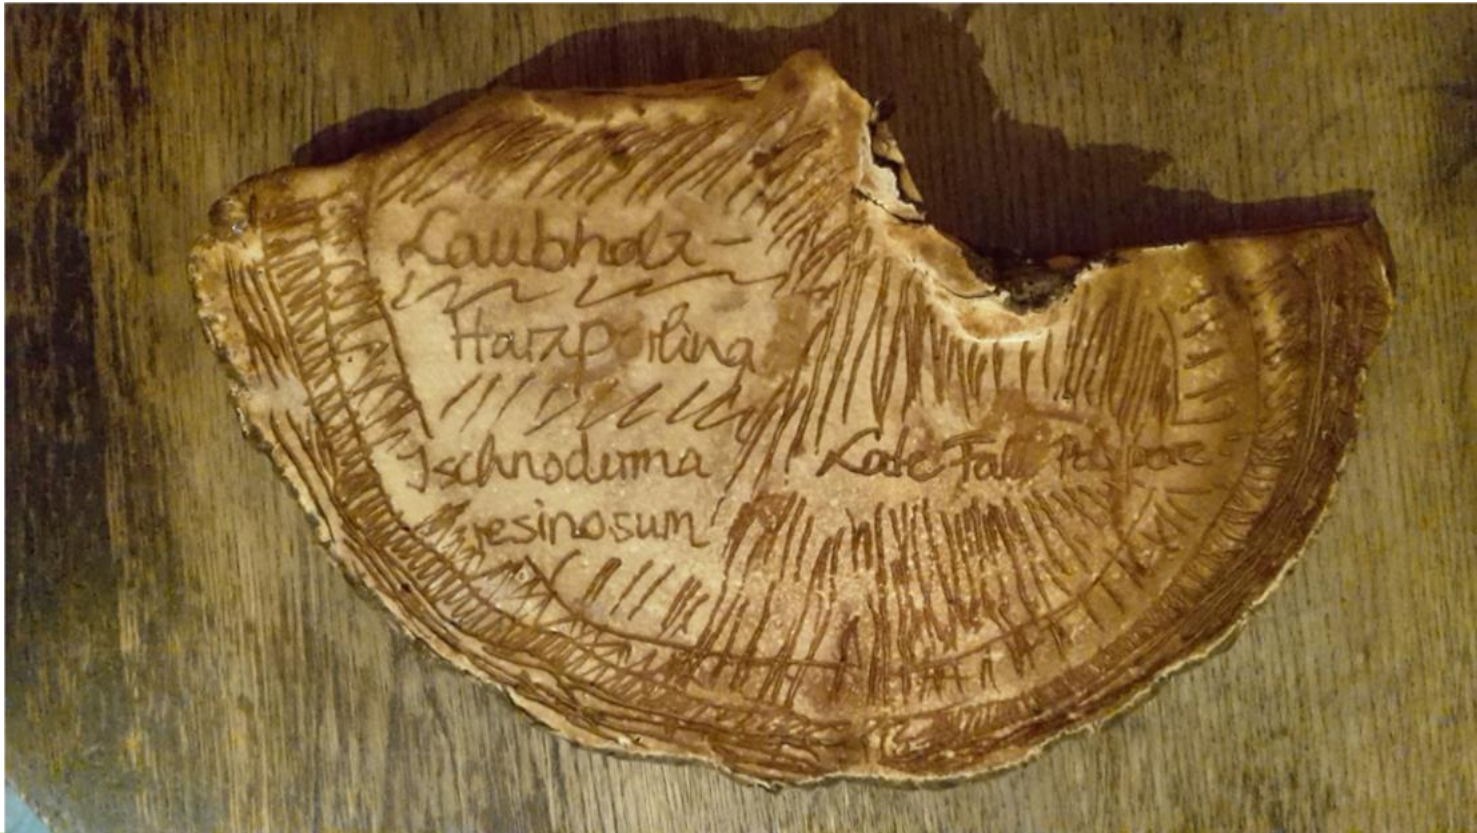 Laubholz-
Harzporling
Ischnoderma
resinosum
Late Fall Polypore